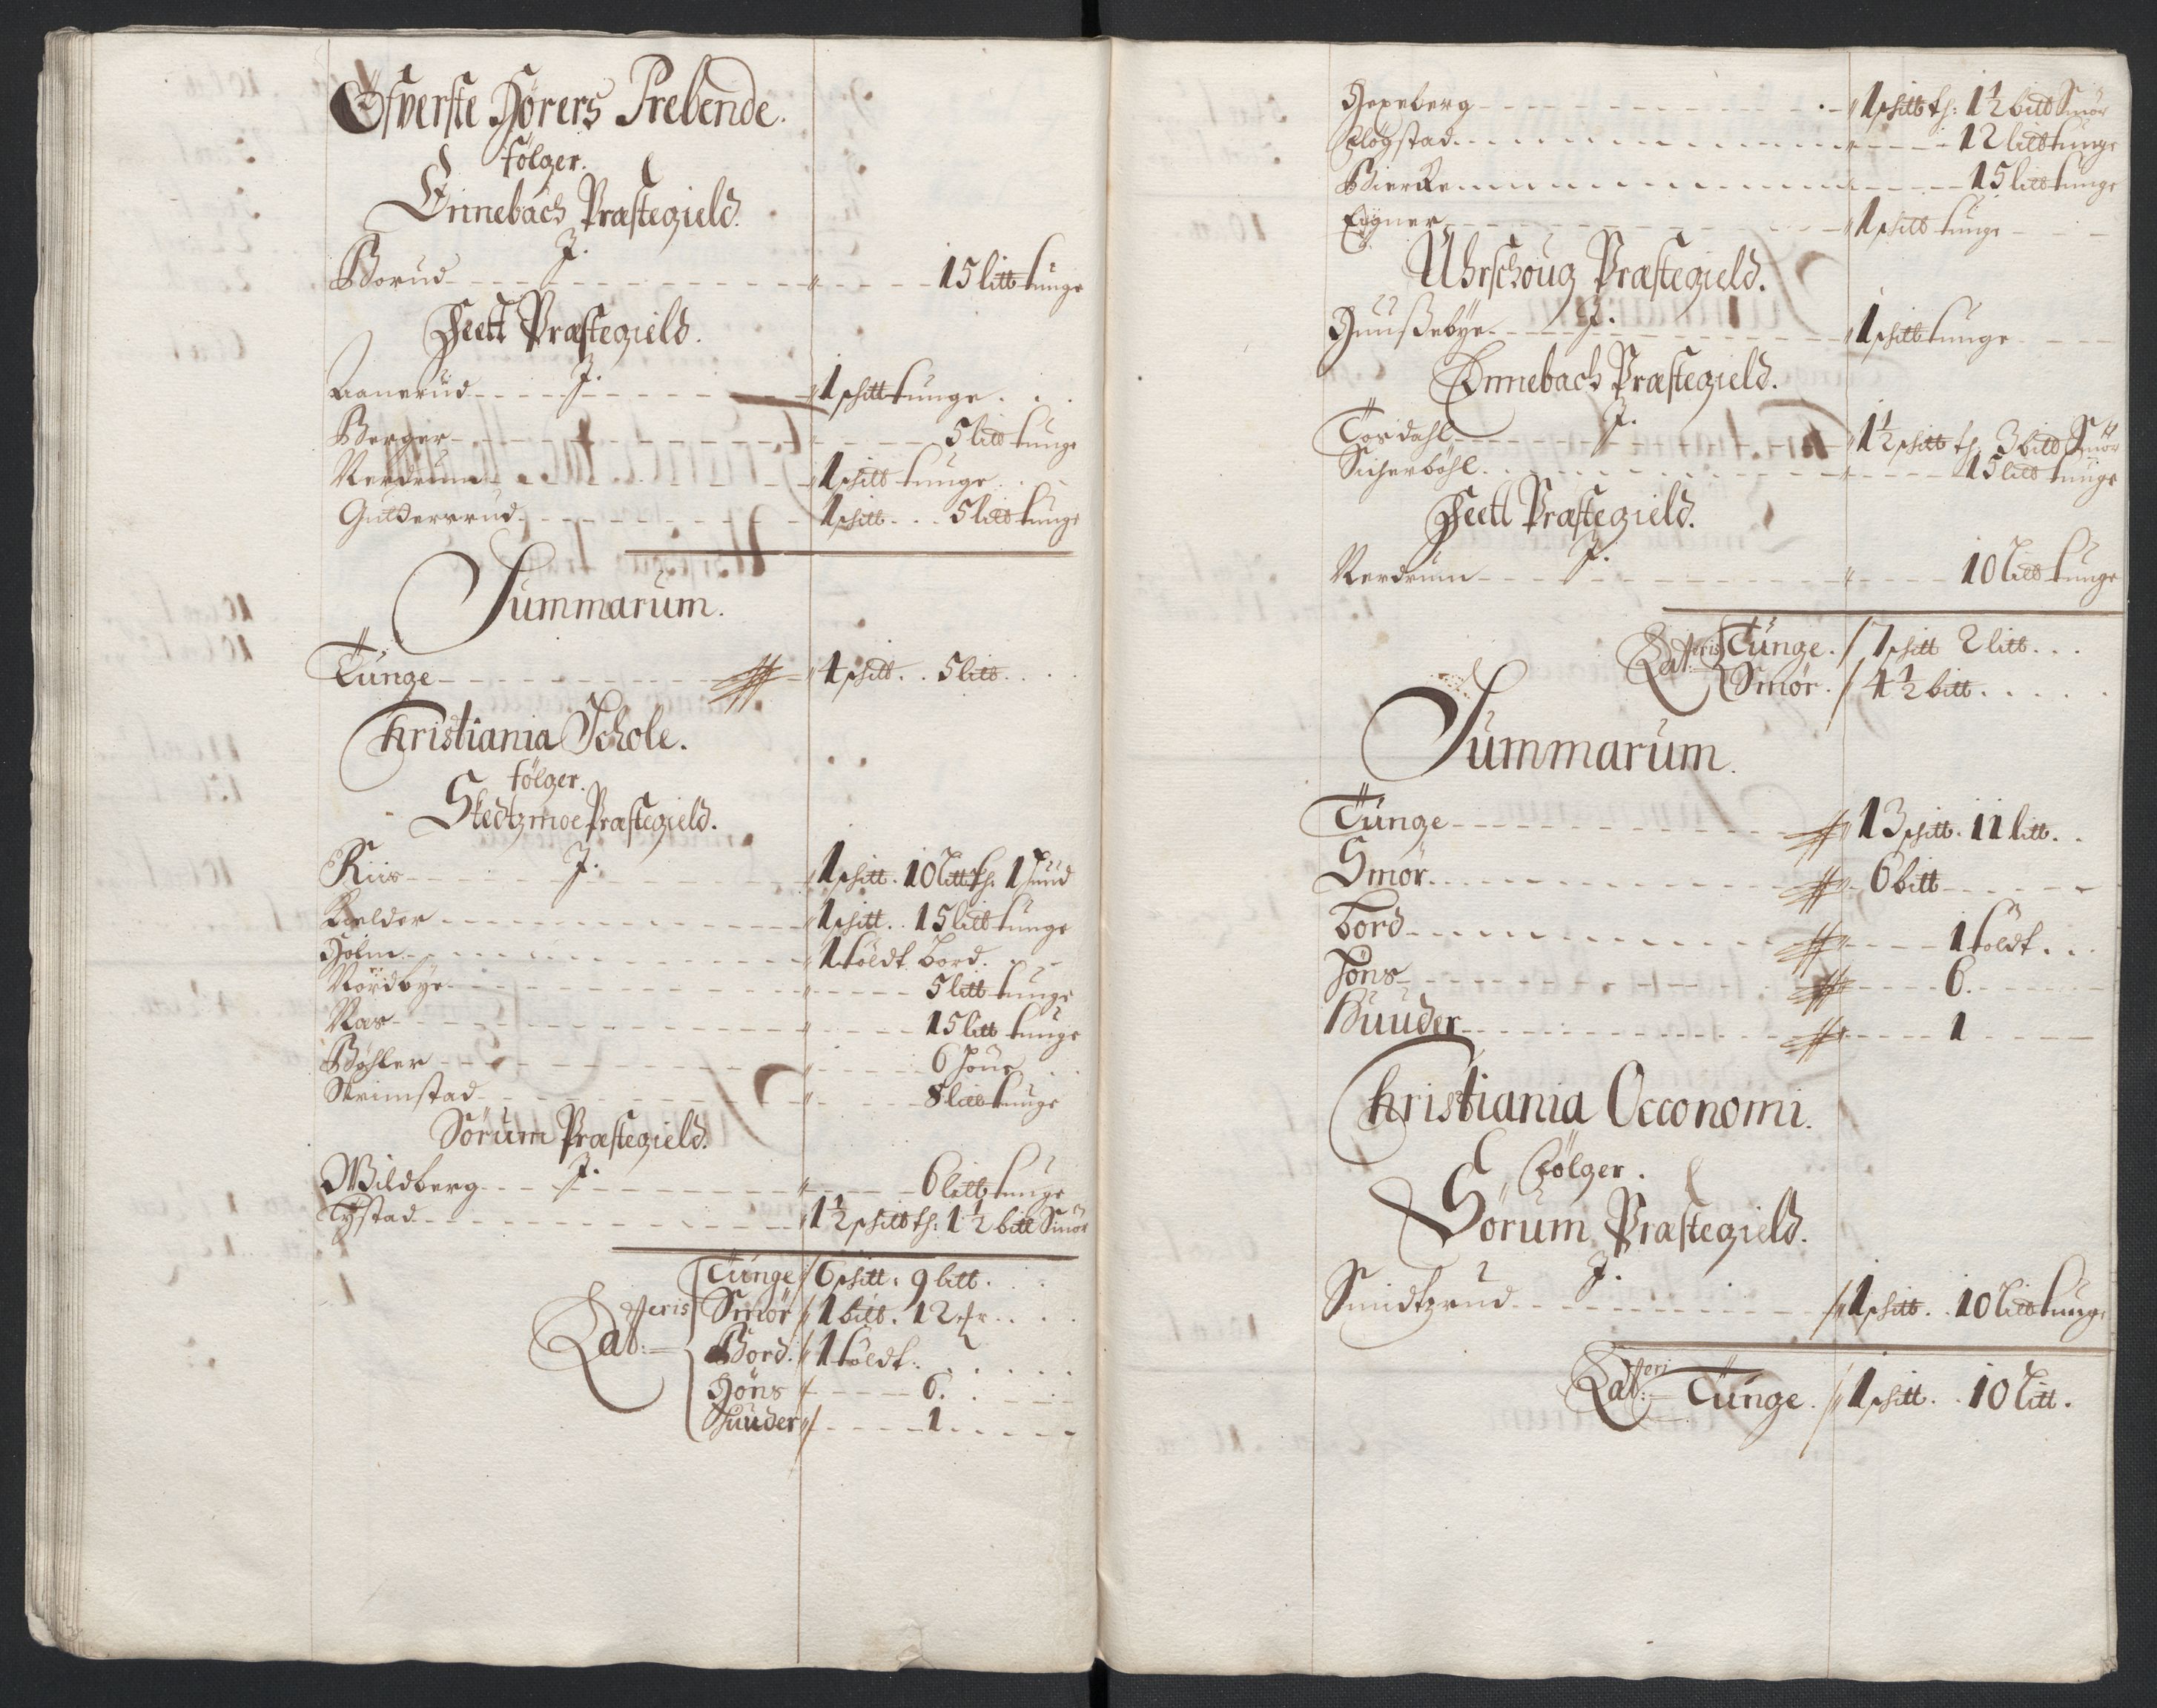 Øfverste Hørers Prebende.
følger.
Ennebach Præstegield.
J.
Borud 15 litt tunge
Feett Præstegield.
J.
Aanerud 1 schitt tunge
Berger 5 litt tunge
Nerdrum 1 schitt tunge
Gutterrud 1 schitt 5 litt tunge
Summarum.
Tunge 4 schitt 5 litt
Kristiania Schole.
følger.
Skedtzmoe Præstegield.
Riis J. 1 schitt 10 litt th: 1 huud
Kielder 1 schitt 15 litt tunge
Holm 1 toldt Bord
Nordbye 5 litt tunge
Næs 15 litt tunge
Bøhler 6 høns
Skrimstad 8 litt tunge
Sørum Præstegield.
J.
Wildberg 6 litt tunge
Tystad 1½ schitt th: 1½ bitt Smör
Lateris Tunge 6 schitt 9 litt
Smör 1 bitt 12 mr
Bord 1 toldt
Høns 6.
Huuder 1
Hexeberg 1 schitt th: 1½ bitt Smör
Flogstad 12 litt tunge
Bierke 15 litt tunge
Egner 1 schitt tunge
Uhrschoug Præstegield.
J.
Huußebye 1 schitt tunge
Ennebach Præstegield.
J.
Tosdahl 1½ schitt th: 3 bitt Smör
Sicherböhl 15 litt tunge
Feett Præstegield.
J.
Nerdrum 10 litt tunge
Lateris Tunge 7 schitt 2 litt
Smör 4½ bitt
Summarum.
Tunge 13 schitt 11 litt
Smör 6 bitt
Bord 1 toldt
Høns 6.
Huuder 1
Kristiania Occonomi.
følger.
Sørum Præstegield.
J.
Smidtzrud 1 schitt 10 litt tunge
Lateri Tunge 1 schitt 10 litt.